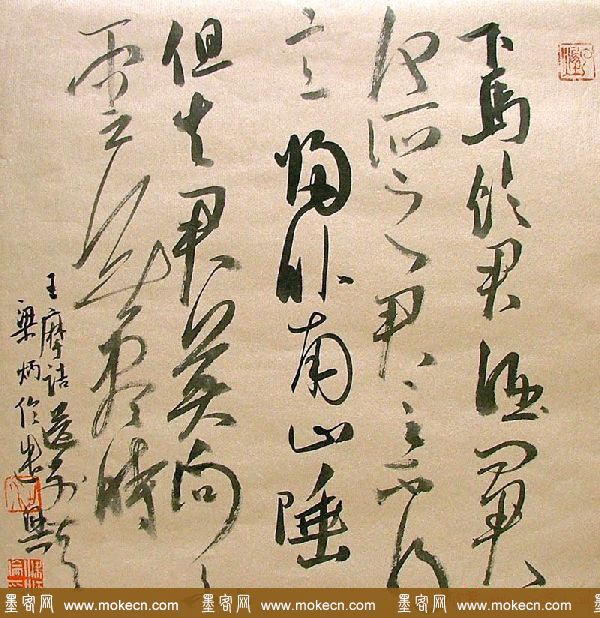 下馬飲君酒問君
何所之君言不得
意歸臥南山陲
但去君莫問白
雲無盡時
王摩詰送別詩
梁炳伦书
墨客网 www.mokecn.com 墨客网 www.mokecn.com 墨客网 www.mokecn.com